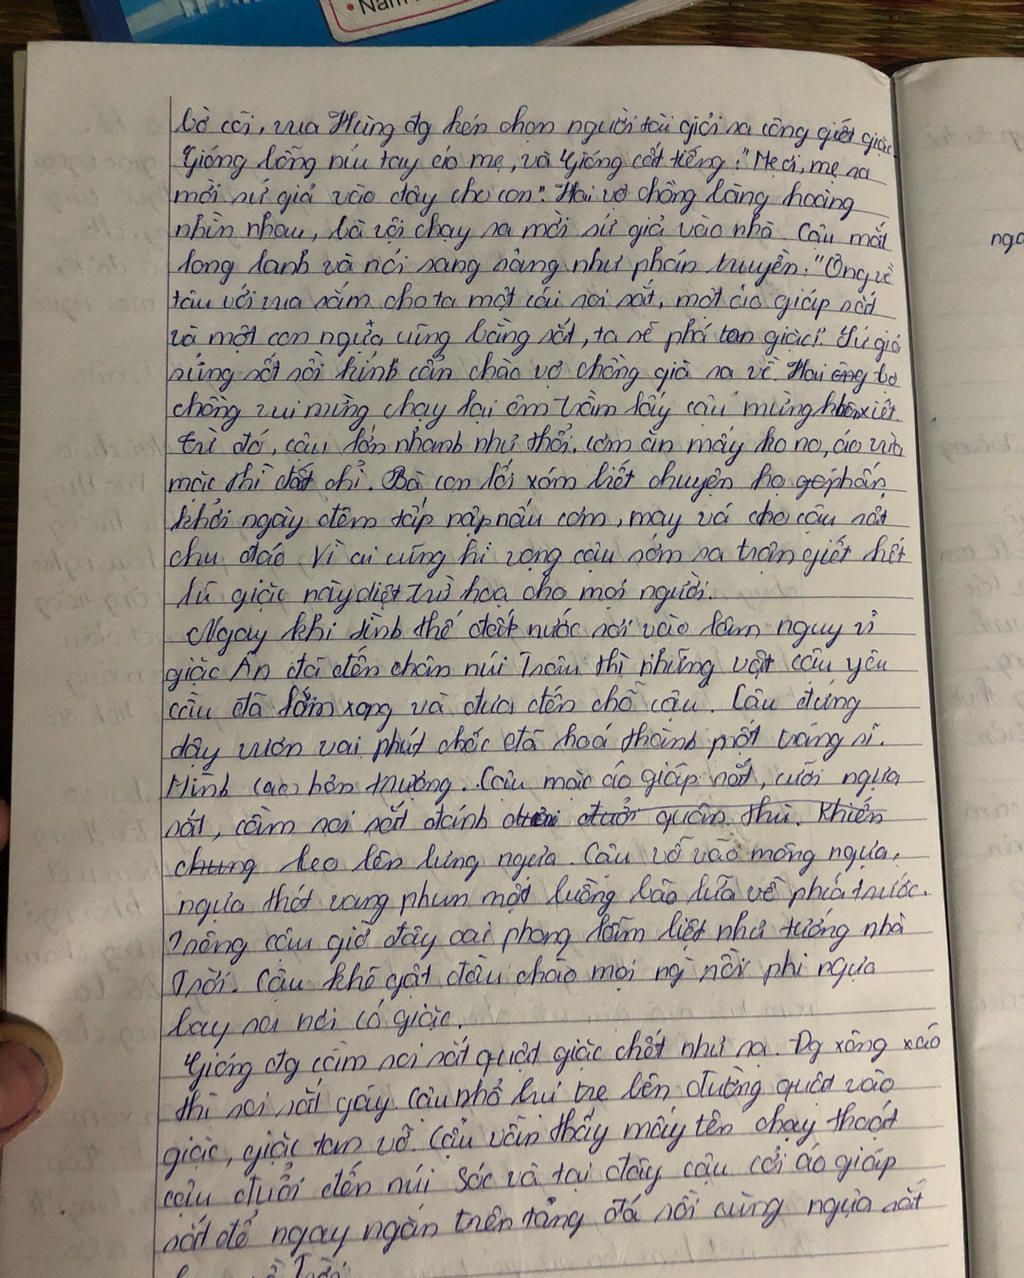 Năm
bờ cõi, vua Hùng đg kén chọn người tài giỏi ra công giết giặc.
Gióng bỗng níu tay áo mẹ, và Gióng cất tiếng: "Mẹ ơi, mẹ ra
mời sứ giả vào đây cho con". Hai vợ chồng bàng hoàng
nhìn nhau, bà vội chạy ra mời sứ giả vào nhà. Cậu mắt
long lanh và nói sang sảng như phán truyền: "Ông về
tâu với vua sắm cho ta một cái roi sắt, một áo giáp sắt
và một con ngựa cũng bằng sắt, ta sẽ phá tan giặc!" Sứ giả
sửng sốt rồi kính cẩn chào vợ chồng già ra về. Hai ông bà
chồng vui mừng chạy lại ôm trầm lấy cậu mừng khôn xiết
từ đó, cậu lớn nhanh như thổi, cơm ăn mấy ko no, áo vừa
mặc thì đứt chỉ. Bà con lối xóm biết chuyện họ phấn
khởi ngày đêm tấp nập nấu cơm, may vá cho cậu rất
chu đáo vì ai cũng hi vọng cậu sớm ra trận giết hết
lũ giặc này diệt trừ hoạ cho mọi người.
Ngay khi tình thế đất nước rơi vào lâm nguy vì
giặc Ân đã đến chân núi Trâu thì những vật cậu yêu
cầu đã làm xong và đưa đến chỗ cậu. Cậu đứng
dậy vươn vai phút chốc đã hoá thành một tráng sĩ.
Mình cao hơn trượng. Cậu mặc áo giáp sắt, cưỡi ngựa
sắt, cầm roi sắt đánh đuổi quân thù. Khiến
chung leo lên lưng ngựa. Cậu vỗ vào mông ngựa,
ngựa thét vang phun một luồng bão lửa về phía trước.
Trông cậu giờ đây oai phong lẫm liệt như tướng nhà
Trời. Cậu khẽ gật đầu chào mọi ng rồi phi ngựa
bay ra nơi có giặc.
Gióng đg cầm roi sắt quật giặc chết như rạ. Đg xông xáo
thì roi sắt gãy. Cậu nhổ bụi tre bên đường quật vào
giặc, giặc tan vỡ. Cậu vẫn thấy mấy tên chạy thoát
cậu đuổi đến núi Sóc và tại đây cậu cởi áo giáp
sắt để ngay ngắn trên tảng đá rồi cùng ngựa sắt
về Trời.